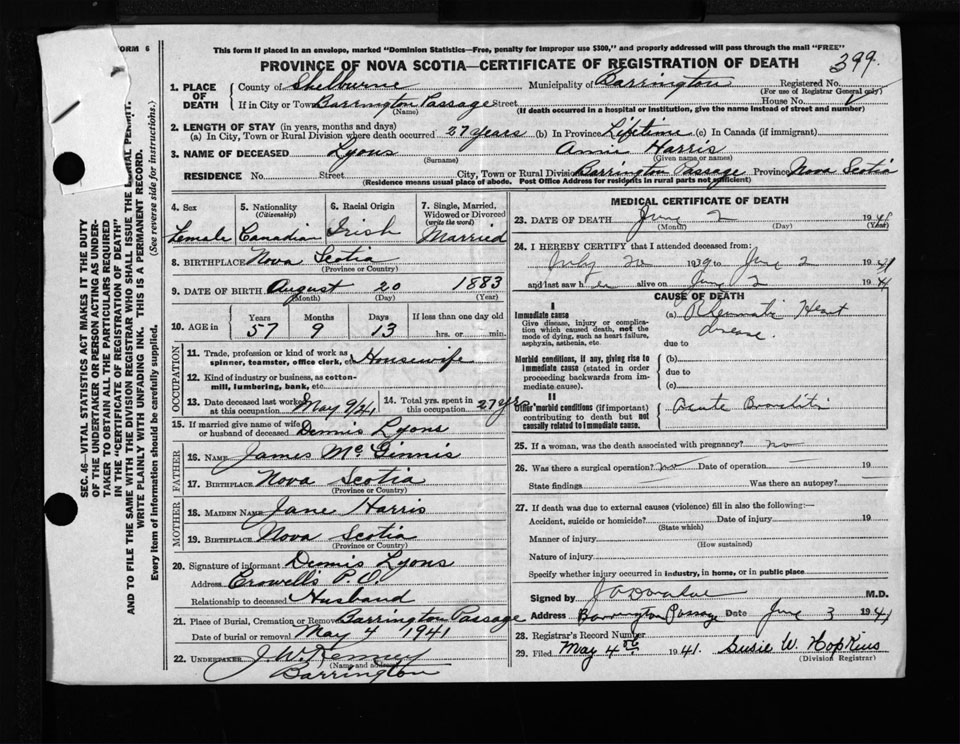 FORM 6
This form if placed in an envelope, marked "Dominion Statistics—Free, penalty for improper use $300," and properly addressed will pass through the mail "FREE"
PROVINCE OF NOVA SCOTIA—CERTIFICATE OF REGISTRATION OF DEATH
399
1. PLACE OF DEATH
County of Shelburne Municipality of Barrington Registered No.
(For use of Registrar General only)
If in City or Town Barrington Passage Street House No.
(Name) (If death occurred in a hospital or institution, give the name instead of street and number)
2. LENGTH OF STAY (in years, months and days)
(a) In City, Town or Rural Division where death occurred 27 years (b) In Province Lifetime (c) In Canada (if immigrant)
3. NAME OF DECEASED Lyons Annie Harris
(Surname) (Given name or names)
RESIDENCE No. Street City, Town or Rural Division Barrington Passage Province Nova Scotia
(Residence means usual place of abode. Post Office Address for residents in rural parts not sufficient)
4. Sex
Female
5. Nationality
(Citizenship)
Canadian
6. Racial Origin
Irish
7. Single, Married, Widowed or Divorced
(write the word)
Married
8. BIRTHPLACE Nova Scotia
(Province or Country)
9. DATE OF BIRTH August 20 1883
(Month) (Day) (Year)
10. AGE in
Years Months Days If less than one day old
57 9 13 hrs. or min.
OCCUPATION
11. Trade, profession or kind of work as
spinner, teamster, office clerk, etc. Housewife
12. Kind of industry or business, as cotton-
mill, lumbering, bank, etc.
13. Date deceased last worked
at this occupation May 9/41
14. Total yrs. spent in
this occupation 27 yrs
15. If married give name of wife
or husband of deceased Dennis Lyons
FATHER
16. NAME James McGinnis
17. BIRTHPLACE Nova Scotia
(Province or Country)
MOTHER
18. MAIDEN NAME Jane Harris
19. BIRTHPLACE Nova Scotia
(Province or Country)
20. Signature of informant Dennis Lyons
Address Crowell's P.O.
Relationship to deceased Husband
21. Place of Burial, Cremation or Removal Barrington Passage
Date of burial or removal May 4 1941
22. UNDERTAKER J. W. Kenney
(Name and address)
Barrington
MEDICAL CERTIFICATE OF DEATH
23. DATE OF DEATH June 2 1941
(Month) (Day) (Year)
24. I HEREBY CERTIFY that I attended deceased from:
July 20 1939 to June 2 1941
and last saw her alive on June 2 1941
CAUSE OF DEATH
I
Immediate cause
Give disease, injury or complication which caused death, not the mode of dying, such as heart failure, asphyxia, asthenia, etc.
(a) Rheumatic Heart
disease
due to
Morbid conditions, if any, giving rise to immediate cause (stated in order proceeding backwards from immediate cause).
(b)
due to
(c)
II
Other morbid conditions (if important) contributing to death but not causally related to immediate cause.
Acute Bronchitis
25. If a woman, was the death associated with pregnancy? no
26. Was there a surgical operation? no Date of operation 19
State findings Was there an autopsy?
27. If death was due to external causes (violence) fill in also the following:—
Accident, suicide or homicide? Date of injury 19
(State which)
Manner of injury
(How sustained)
Nature of injury
Specify whether injury occurred in industry, in home, or in public place
Signed by M.D.
Address Barrington Passage Date June 3 1941
28. Registrar's Record Number
29. Filed May 4th 1941. Susie W. Hopkins
(Division Registrar)
SEC. 46—VITAL STATISTICS ACT MAKES IT THE DUTY
OF THE UNDERTAKER OR PERSON ACTING AS UNDER-
TAKER TO OBTAIN ALL THE PARTICULARS REQUIRED
IN THE "CERTIFICATE OF REGISTRATION OF DEATH"
AND TO FILE THE SAME WITH THE DIVISION REGISTRAR WHO SHALL ISSUE THE PERMIT.
WRITE PLAINLY WITH UNFADING INK. THIS IS A PERMANENT RECORD.
Every item of information should be carefully supplied. (See reverse side for instructions.)